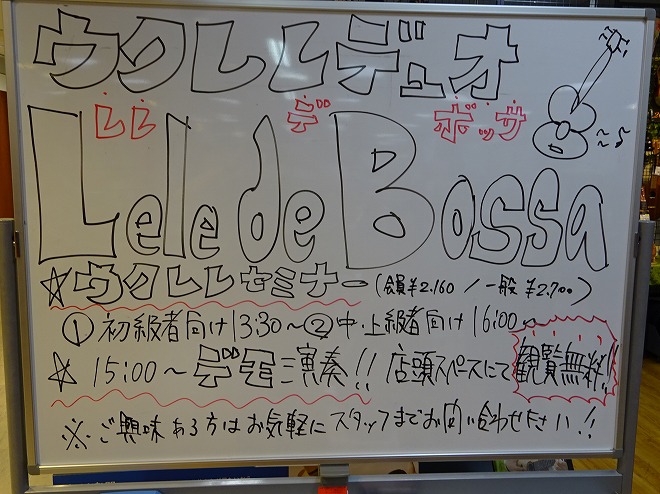 ウクレレデュオ
レレ デ ボッサ
Lele de Bossa
☆ウクレレセミナー(会員¥2.160/一般¥2.700)
①初級者向け13:30〜②中・上級者向け16:00〜
☆15:00〜デモ演奏!!店頭スペースにて観覧無料!!
※ご興味ある方はお気軽にスタッフまでお問い合わせ下さい!!